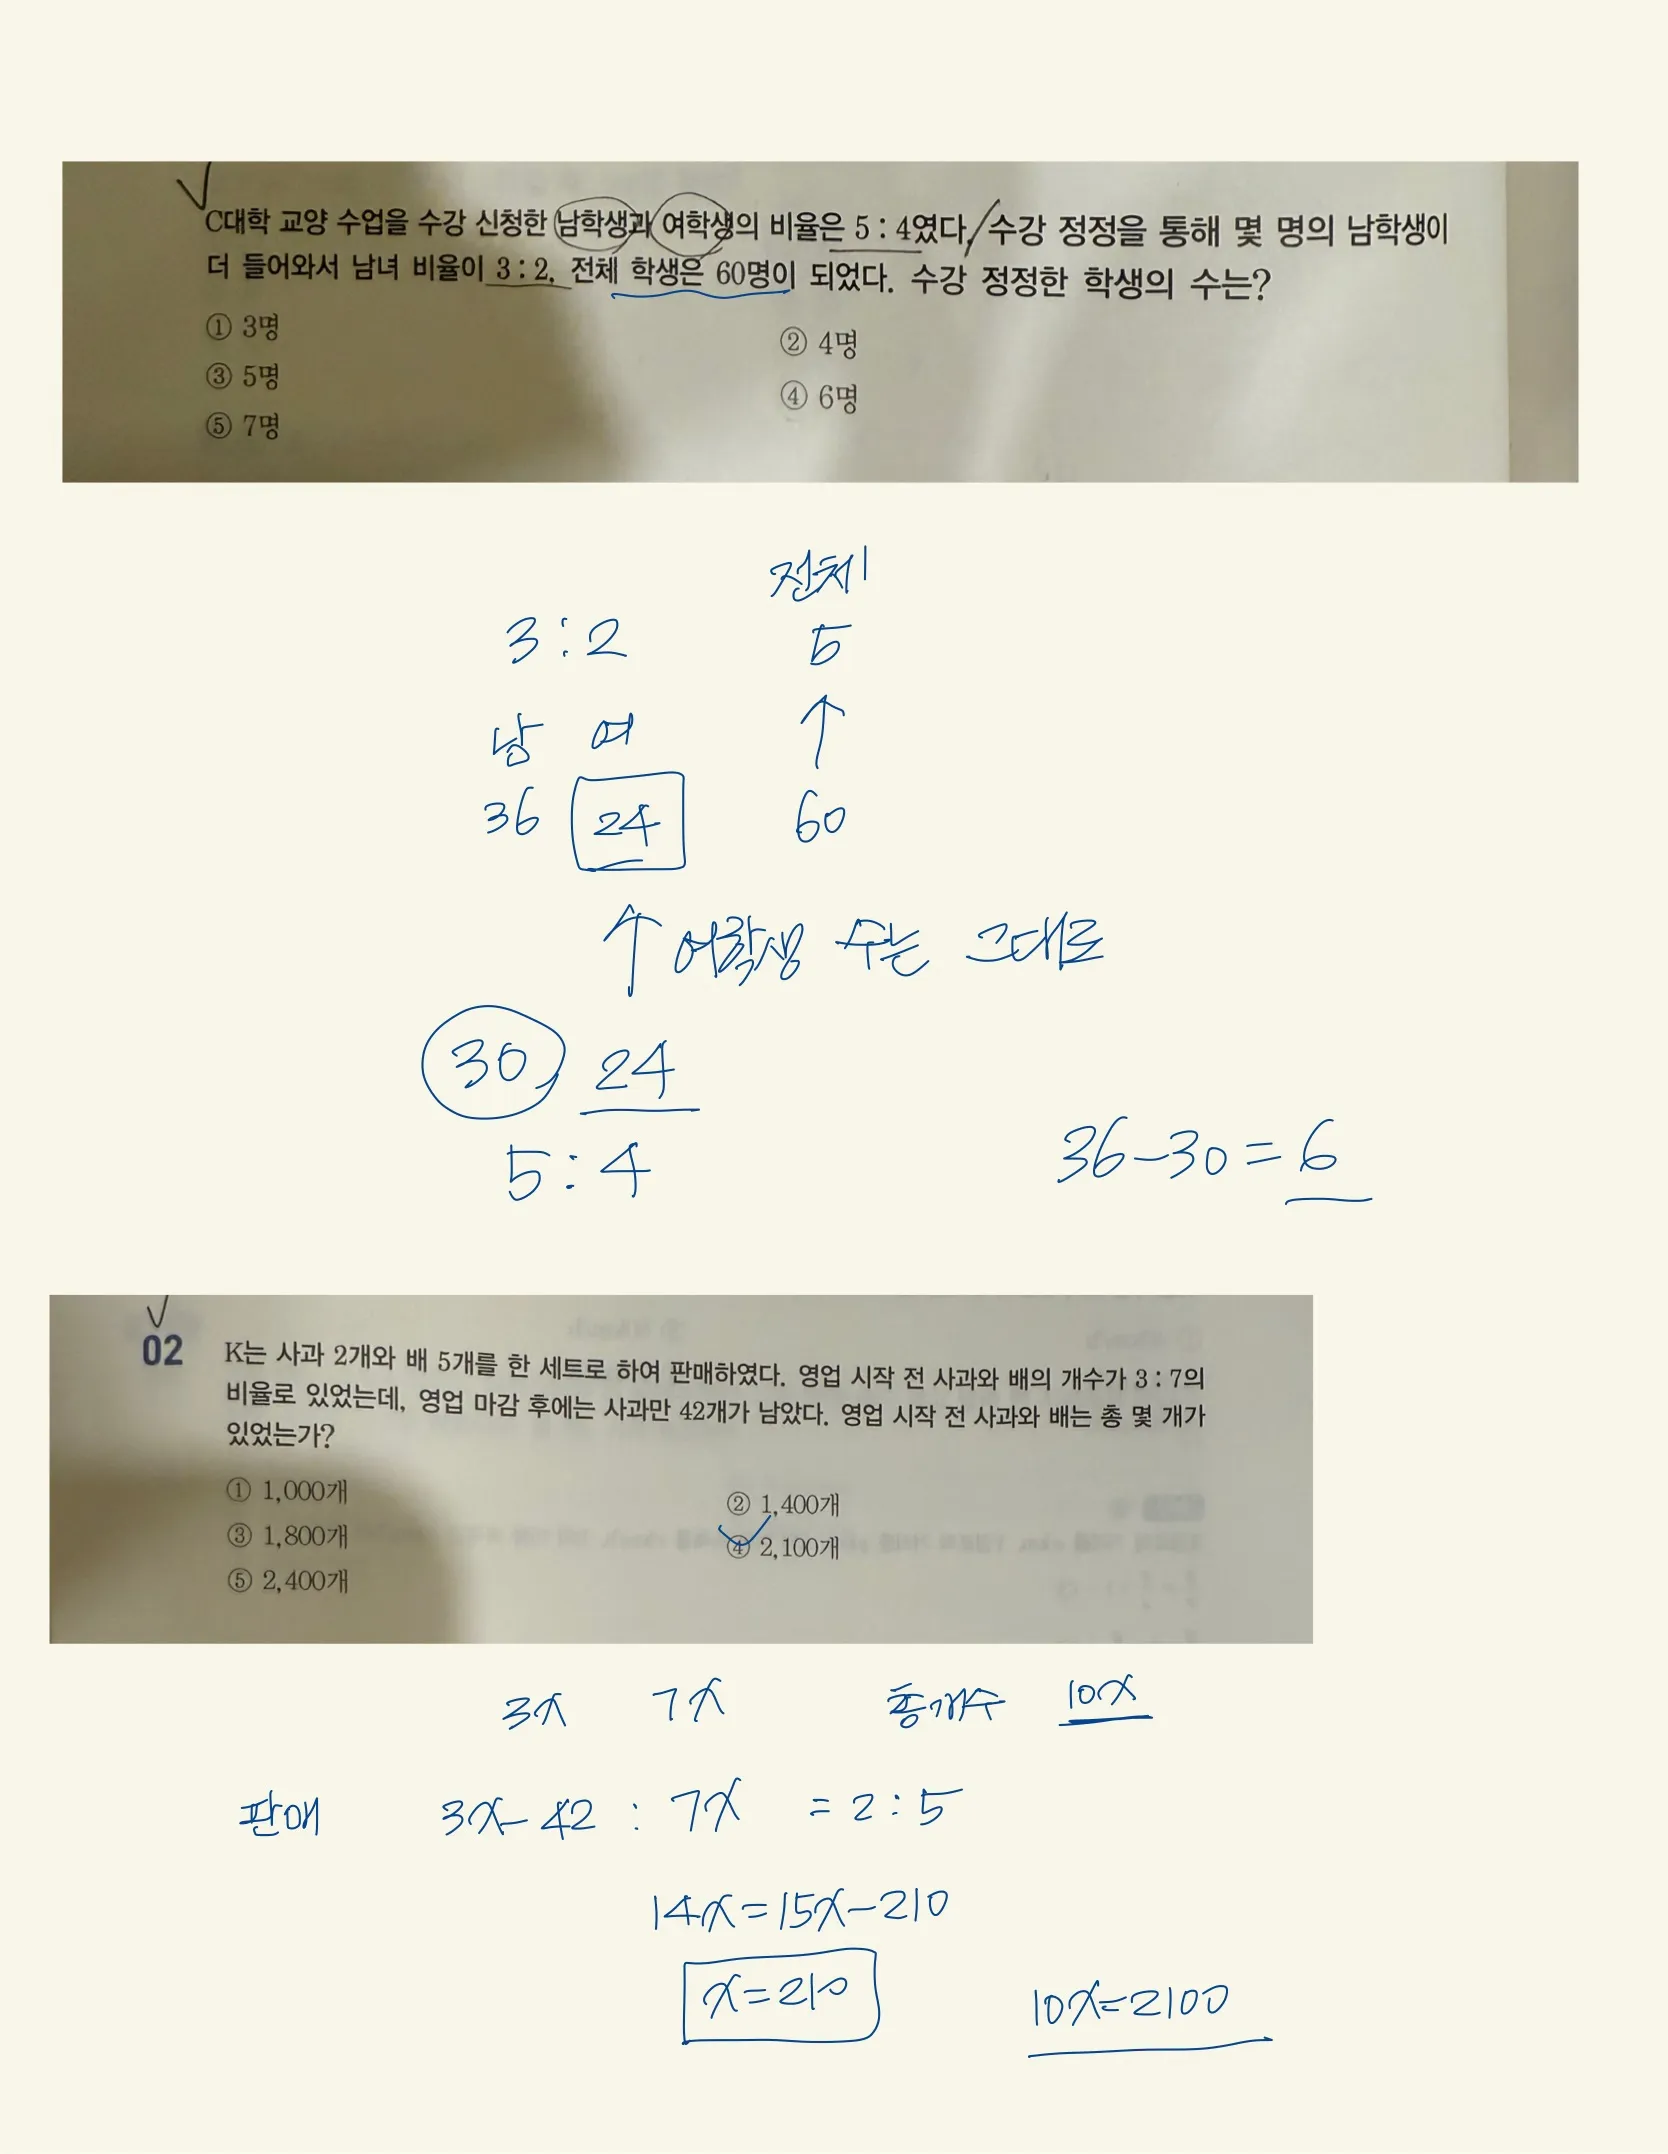 C대학 교양 수업을 수강 신청한 남학생과 여학생의 비율은 5 : 4였다. 수강 정정을 통해 몇 명의 남학생이
더 들어와서 남녀 비율이 3 : 2, 전체 학생은 60명이 되었다. 수강 정정한 학생의 수는?
① 3명
② 4명
③ 5명
④ 6명
⑤ 7명
전체
3 : 2 5
남 여
36 24 60
여학생 수는 그대로
30, 24
5 : 4
36-30=6
02 K는 사과 2개와 배 5개를 한 세트로 하여 판매하였다. 영업 시작 전 사과와 배의 개수가 3 : 7의
비율로 있었는데, 영업 마감 후에는 사과만 42개가 남았다. 영업 시작 전 사과와 배는 총 몇 개가
있었는가?
① 1,000개
② 1,400개
③ 1,800개
④ 2,100개
⑤ 2,400개
3x 7x 총개수 10x
판매 3x-42 : 7x = 2 : 5
14x=15x-210
x=210
10x=2100